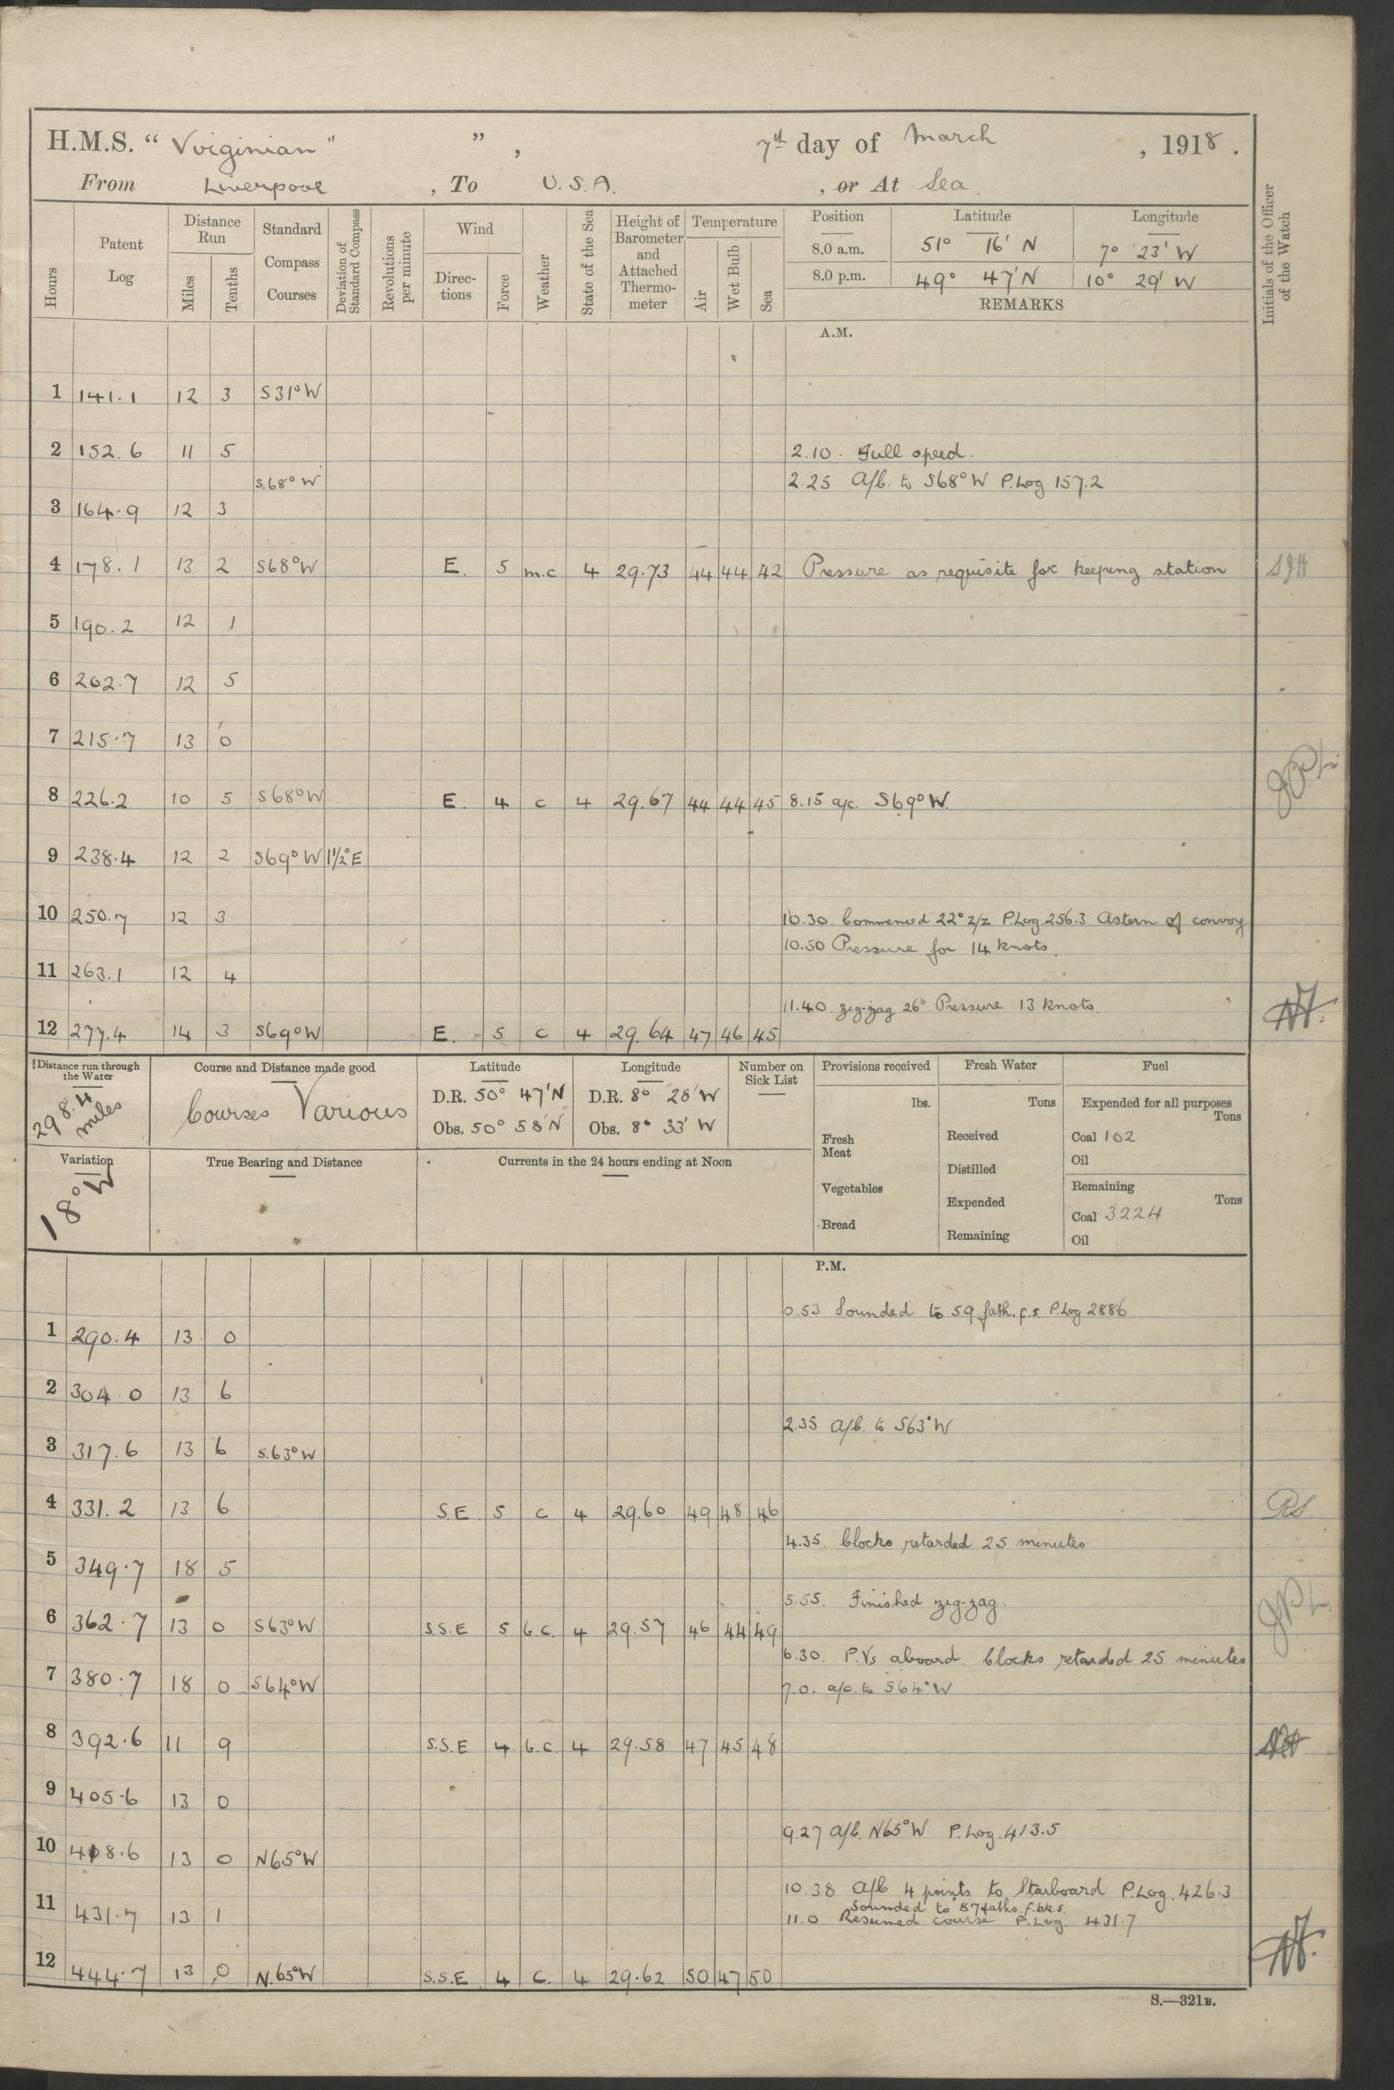 H.M.S. “ Virginian ” ” , 7th day of March , 1918 .
From Liverpool , To U.S.A. , or At Sea
Hours Patent Log Distance Run Miles Tenths Standard Compass Courses Deviation of Standard Compass Revolutions per minute Wind Directions Force Weather State of the Sea Height of Barometer and Attached Thermometer Temperature Air Wet Bulb Sea Position Latitude Longitude Initials of the Officer of the Watch
8.0 a.m. 51° 16' N 7° 23' W
8.0 p.m. 49° 47' N 10° 29' W
REMARKS
A.M.
1 141.1 12 3 S31°W
2 152.6 11 5 2.10. Full speed.
S.68°W 2.25 A/c. to S68°W P.Log 157.2
3 164.9 12 3
4 178.1 13 2 S68°W E. 5 m.c 4 29.73 44 44 42 Pressure as requisite for keeping station SJH
5 190.2 12 1
6 202.7 12 5
7 215.7 13 0
8 226.2 10 5 S68°W E. 4 c 4 29.67 44 44 45 8.15 a/c. S69°W
9 238.4 12 2 S69°W 1½°E
10 250.7 12 3 10.30. Commenced 22° z/z P.Log 256.3 Astern of convoy
10.50 Pressure for 14 knots.
11 263.1 12 4
11.40. zig-zag 26° Pressure 13 knots.
12 277.4 14 3 S69°W E. 5 c 4 29.64 47 46 45
Distance run through the Water Course and Distance made good Latitude Longitude Number on Sick List Provisions received Fresh Water Fuel
298.4 miles Courses Various D.R. 50° 47' N D.R. 8° 28' W lbs. Tons Expended for all purposes Tons
Obs. 50° 58' N Obs. 8° 33' W Fresh Meat Received Coal 102
Oil
Variation True Bearing and Distance Currents in the 24 hours ending at Noon Distilled
18°W Vegetables Expended Remaining Tons
Coal 3224
Bread Remaining Oil
P.M.
0.53 Sounded to 59 fath. f.s. P.Log 2886
1 290.4 13 0
2 304.0 13 6
2.35 A/c. to S63°W
3 317.6 13 6 S.63°W
4 331.2 13 6 S.E 5 c 4 29.60 49 48 46 RS
4.35. Clocks retarded 25 minutes
5 349.7 18 5
5.55. Finished zig-zag.
6 362.7 13 0 S63°W S.S.E 5 b.c. 4 29.57 46 44 49
6.30. P.Vs aboard. Clocks retarded 25 minutes
7 380.7 18 0 S64°W 7.0. a/c. to S64°W
8 392.6 11 9 S.S.E 4 b.c. 4 29.58 47 45 48
9 405.6 13 0
9.27 A/c. N65°W P.Log. 413.5
10 418.6 13 0 N65°W
10.38 A/c 4 points to Starboard P.Log. 426.3
Sounded to 87 faths. f.bk.s.
11 431.7 13 1 11.0 Resumed course P.Log. 431.7
12 444.7 13 0 N.65°W S.S.E 4 C. 4 29.62 50 47 50
S.—321B.